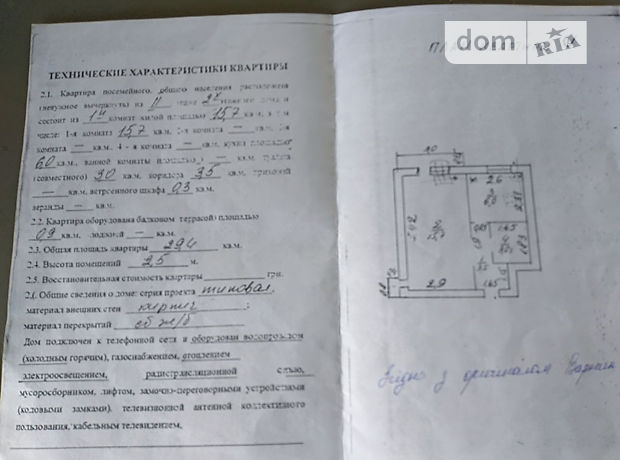 ТЕХНИЧЕСКИЕ ХАРАКТЕРИСТИКИ КВАРТИРЫ
2.1. Квартира посемейного, общего населения расположена
(ненужное вычеркнуть) на II этаже 2х этажного дома и
состоит из 1й комнат жилой площадью 15,7 кв.м, в том
числе: 1-я комната 15,7 кв.м, 2-я комната — кв.м, 3-я
комната — кв.м, 4 - я комната — кв.м, кухни площадью
6,0 кв.м., ванной комнаты площадью — кв.м, туалета
(совместного) 3,0 кв.м, коридора 3,5 кв.м, прихожей
— кв.м, встроенного шкафа 0,3 кв.м.
веранды — кв.м.
2.2. Квартира оборудована балконом террасой) площадью
0,9 кв.м, лоджией — кв.м.
2.3. Общая площадь квартиры 29,4 кв.м.
2.4. Высота помещений 2,5 м.
2.5. Восстановительная стоимость квартиры грн.
2.6. Общие сведения о доме: серия проекта типовая
материал внешних стен кирпич ;
материал перекрытий сб ж/б
Дом подключен к телефонной сети и оборудован водопроводом
(холодным горячим), газоснабжением, отоплением
электроосвещением, радиотрансляционной сетью,
мусоросборником, лифтом, замочно-переговорными устройствами
(кодовыми замками), телевизионной антенной коллективного
пользования, кабельным телевидением.
dom RIA
2,6
5,42
2,9
1,65
Згідно з оригіналом